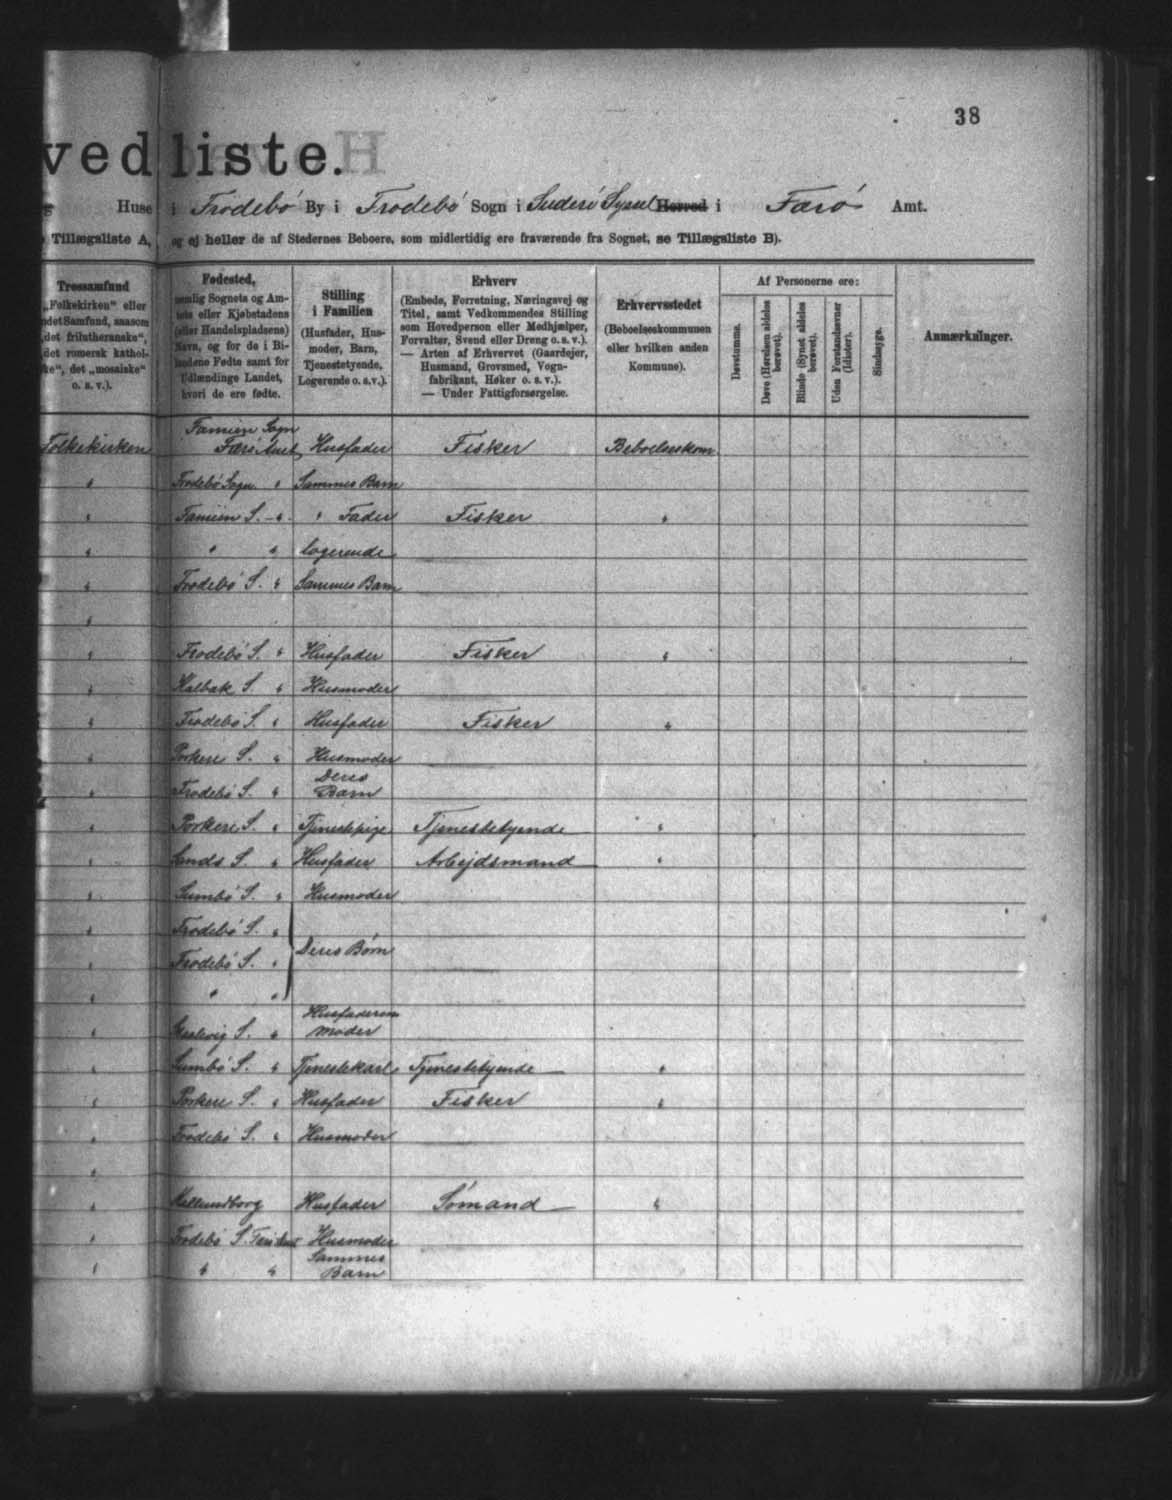 38
vedliste.
Huse i Frodebö By i Frodebö Sogn i Suderö Syssel Herred i Færö Amt.
Tillægsliste A, og ej heller de af Stedernes Beboere, som midlertidig ere fraværende fra Sognet, se Tillægsliste B).
Trossamfund
„Folkekirken“ eller
ndet Samfund, saasom
det frilutheranske“,
det romersk kathol-
ke“, det „mosaiske“
o. s. v.).
Fødested,
nemlig Sognets og Am-
tets eller Kjøbstadens
(eller Handelspladsens)
Navn, og for de i Bi-
landene Fødte samt for
Udlændinge Landet,
hvori de ere fødte.
Stilling
i Familien
(Husfader, Hus-
moder, Barn,
Tjenestetyende,
Logerende o. s. v.).
Erhverv
(Embede, Forretning, Næringsvej og
Titel, samt Vedkommendes Stilling
som Hovedperson eller Medhjælper,
Forvalter, Svend eller Dreng o. s. v.).
— Arten af Erhvervet (Gaardejer,
Husmand, Grovsmed, Vogn-
fabrikant, Høker o. s. v.).
— Under Fattigforsørgelse.
Erhvervsstedet
(Beboelseskommunen
eller hvilken anden
Kommune).
Af Personerne ere:
Døvstumme.
Døve (Hørelsen aldeles
berøvet).
Blinde (Synet aldeles
berøvet).
Uden Forstandsevner
(Idioter).
Sindssyge.
Anmærkninger.
Famien Sogn
Folkekirken Færö Amt Husfader Fisker Beboelseskom
" Frodebö Sogn " Sammes Barn
" Famien S. " " Fader Fisker "
" " " logerende
" Frodebö S. " Sammes Barn
"
" Frodebö S. " Husfader Fisker "
" Kalbak S. " Husmoder
" Frodebö S. " Husfader Fisker "
" Porkere S. " Husmoder
" Frodebö S. " Deres Barn
" Porkere S. " Tjenestepige Tjenestetyende "
" Sands S. " Husfader Arbejdsmand "
" Sumbö S. " Husmoder
" Frodebö S. "
" Frodebö S. " Deres Börn
" " "
Husfaderens
" S. " Moder
" Sumbö S. " Tjenestekarl Tjenestetyende "
" Porkere S. " Husfader Fisker "
" Frodebö S. " Husmoder
"
" Kallundborg Husfader Sömand "
" Frodebö S. Færö Amt Husmoder
" " " Sammes Barn